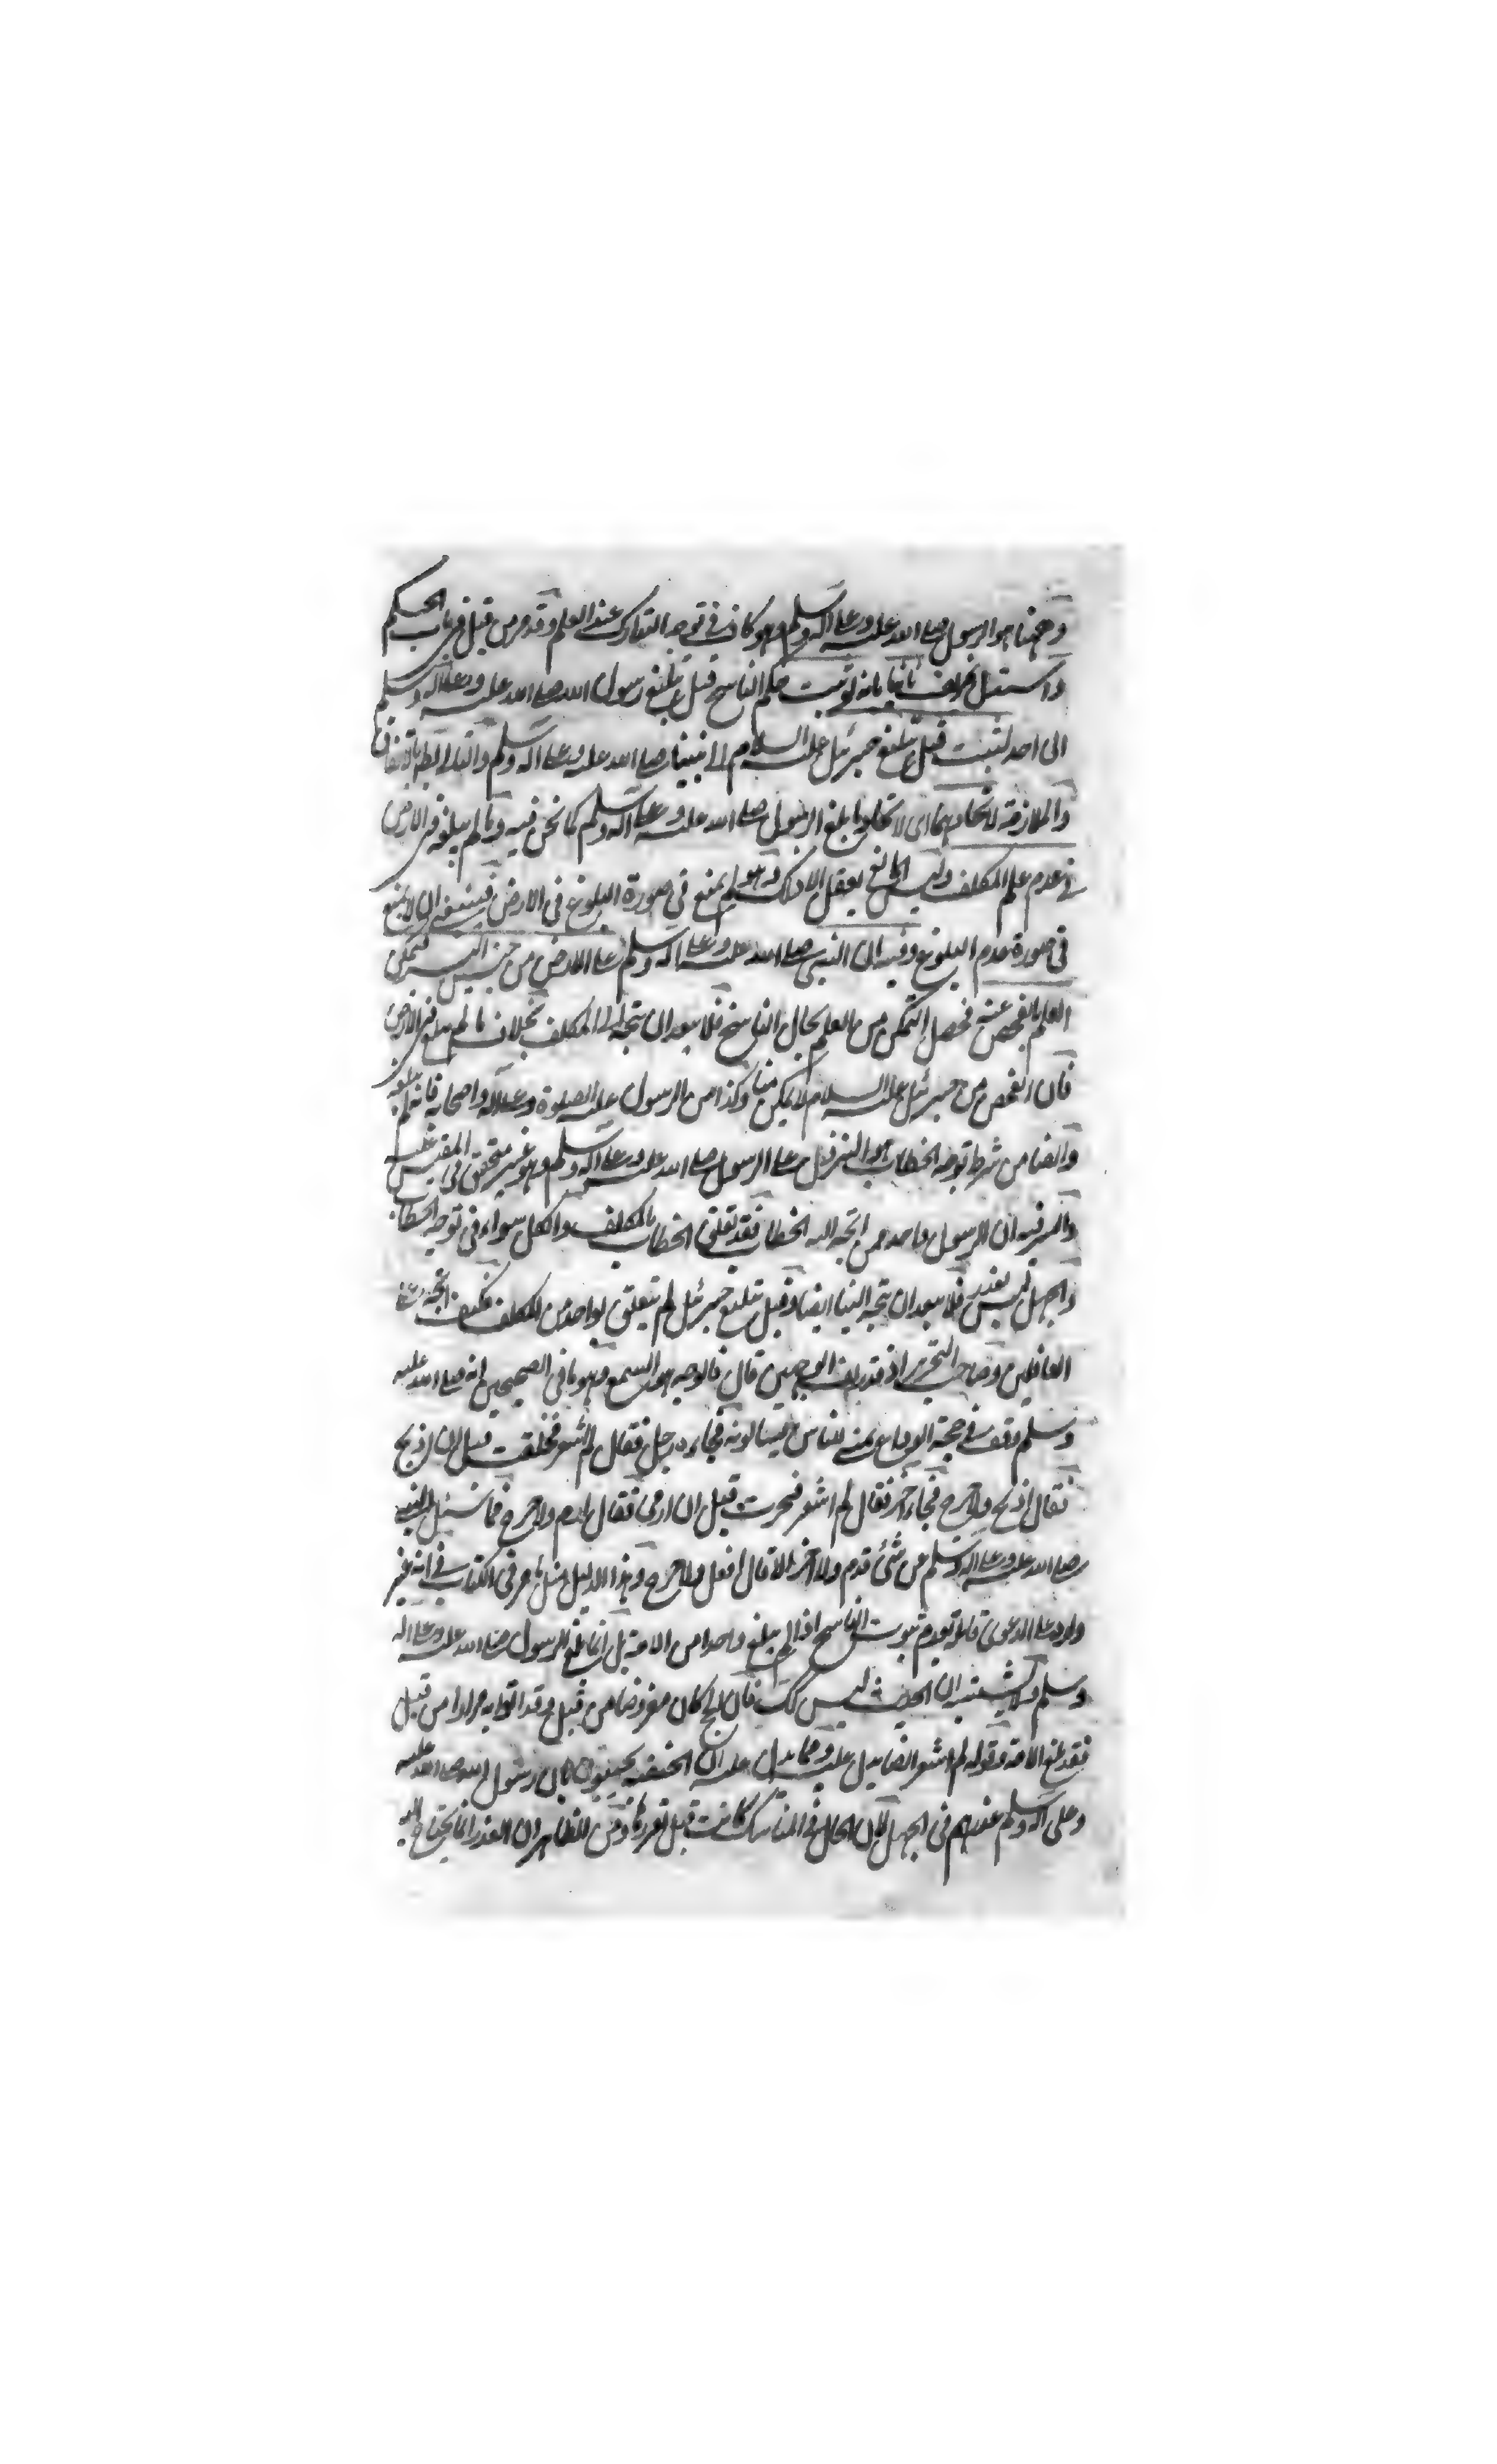 وههنا هو الرسول صلى الله عليه وعلى اله وسلم وهو كاف في توجه التدارك عند العلم وقد مر من قبل في باب الحكم
واستدل ثانيا بانه لو ثبت حكم الناسخ قبل تبليغ رسول الله صلى الله عليه وعلى اله وسلم
الى احد لثبت قبل تبليغ جبرئيل عليه السلام الى نبينا صلى الله عليه وعلى اله وسلم والتالي باطل باتفاق
والملازمة لاتحادهما اى لاتحاد ما بلغ الرسول صلى الله عليه وعلى اله وسلم كما نحن فيه وما لم يبلغ فى الارض
في عدم علم المكلف وليس المانع بعقل الا ذلك وهو لم يمنع في صورة البلوغ في الارض فينبغي ان لا يمنع
في صورة عدم البلوغ وفيه ان النبي صلى الله عليه وعلى اله وسلم على الارض من جنس البشر فيمكن
العلم بالفحص عنه فحصل التمكن من العلم بحال الناسخ فلا يبعد ان يتجه الى المكلف بخلاف ما لم يبلغ فى الارض
فان الفحص من جبرئيل عليه السلام لا يمكن منا وكذا من الرسول عليه الصلوة وعلى آله واصحابه فانه لم يبلغه
وايضا من شرط توجه الخطاب هو النزول على الرسول صلى الله عليه وعلى اله وسلم وهو غير متحقق في المقيس عليه
والسر فيه ان الرسول واحد ممن اتجه اليه الخطاب فقد تعلق الخطاب بالمكلف والكل سواء في توجه الخطاب
والجهل ليس بعذر فلا يبعد ان يتجه الينا ايضا وقبل تبليغ جبرئيل لم يتعلق بواحد من المكلف فكيف اتجه على
الغافلين وصاحب التحرير اذ قد زيف الوجهين قال فالوجه هو السمع وهو ما في الصحيحين انه صلى الله عليه
وسلم وقف في حجة الوداع بمنى للناس يسالونه فجاءه رجل فقال لم اشعر فحلقت قبل ان اذبح
فقال اذبح ولا حرج فجاء آخر فقال لم اشعر فنحرت قبل ان ارمى فقال ارم ولا حرج فما سئل النبي
صلى الله عليه وعلى اله وسلم عن شئ قدم ولا اخر الا قال افعل ولا حرج وهذا الدليل مثل ما مر في الكتاب في انه غير
وارد على الدعوى قائلة بعدم ثبوت الناسخ اذا لم يبلغ واحدا من الامة بل انما بلغ الرسول صلى الله عليه وعلى اله
وسلم ولا يشتبه ان الحديث ليس كك فان الحج كان مفروضا من قبل وقد اتوا به مرارا من قبل
فقد بلغ الامة وقوله لم اشعر ايضا يدل عليه ومما يدل عليه ان الحنفية يجيبون بان رسول الله صلى الله عليه
وعلى اله وسلم عذرهم في الجهل لان الحال في المناسك كانت قبل تقررها ومن الظاهر ان العذر انما يحتاج اليه